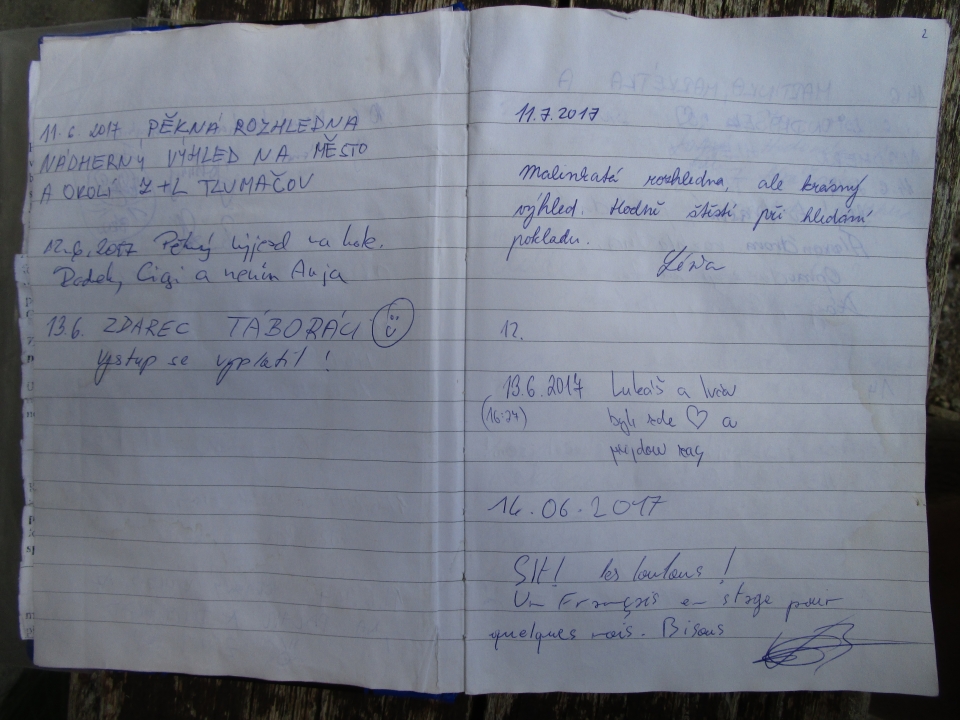 11.6. 2017 PĚKNÁ ROZHLEDNA
NÁDHERNÝ VÝHLED NA MĚSTO
A OKOLÍ Z+L TLUMAČOV
12.6, 2017 Pěkný výjezd na kole.
Radek, Cigi a
13.6. ZDAREC TÁBORÁCI
Výstup se vyplatil!
2
11.7.2017
Malinkatá rozhledna, ale krásný
výhled. Hodně štěstí při hledání
pokladu.
12.
13.6.2017 Lukáš a
(16:24) byli zde ♡ a
přijdou zas
14.06.2017
Slt! les loulous!
Un Français en stage pour
quelques mois. Bisous